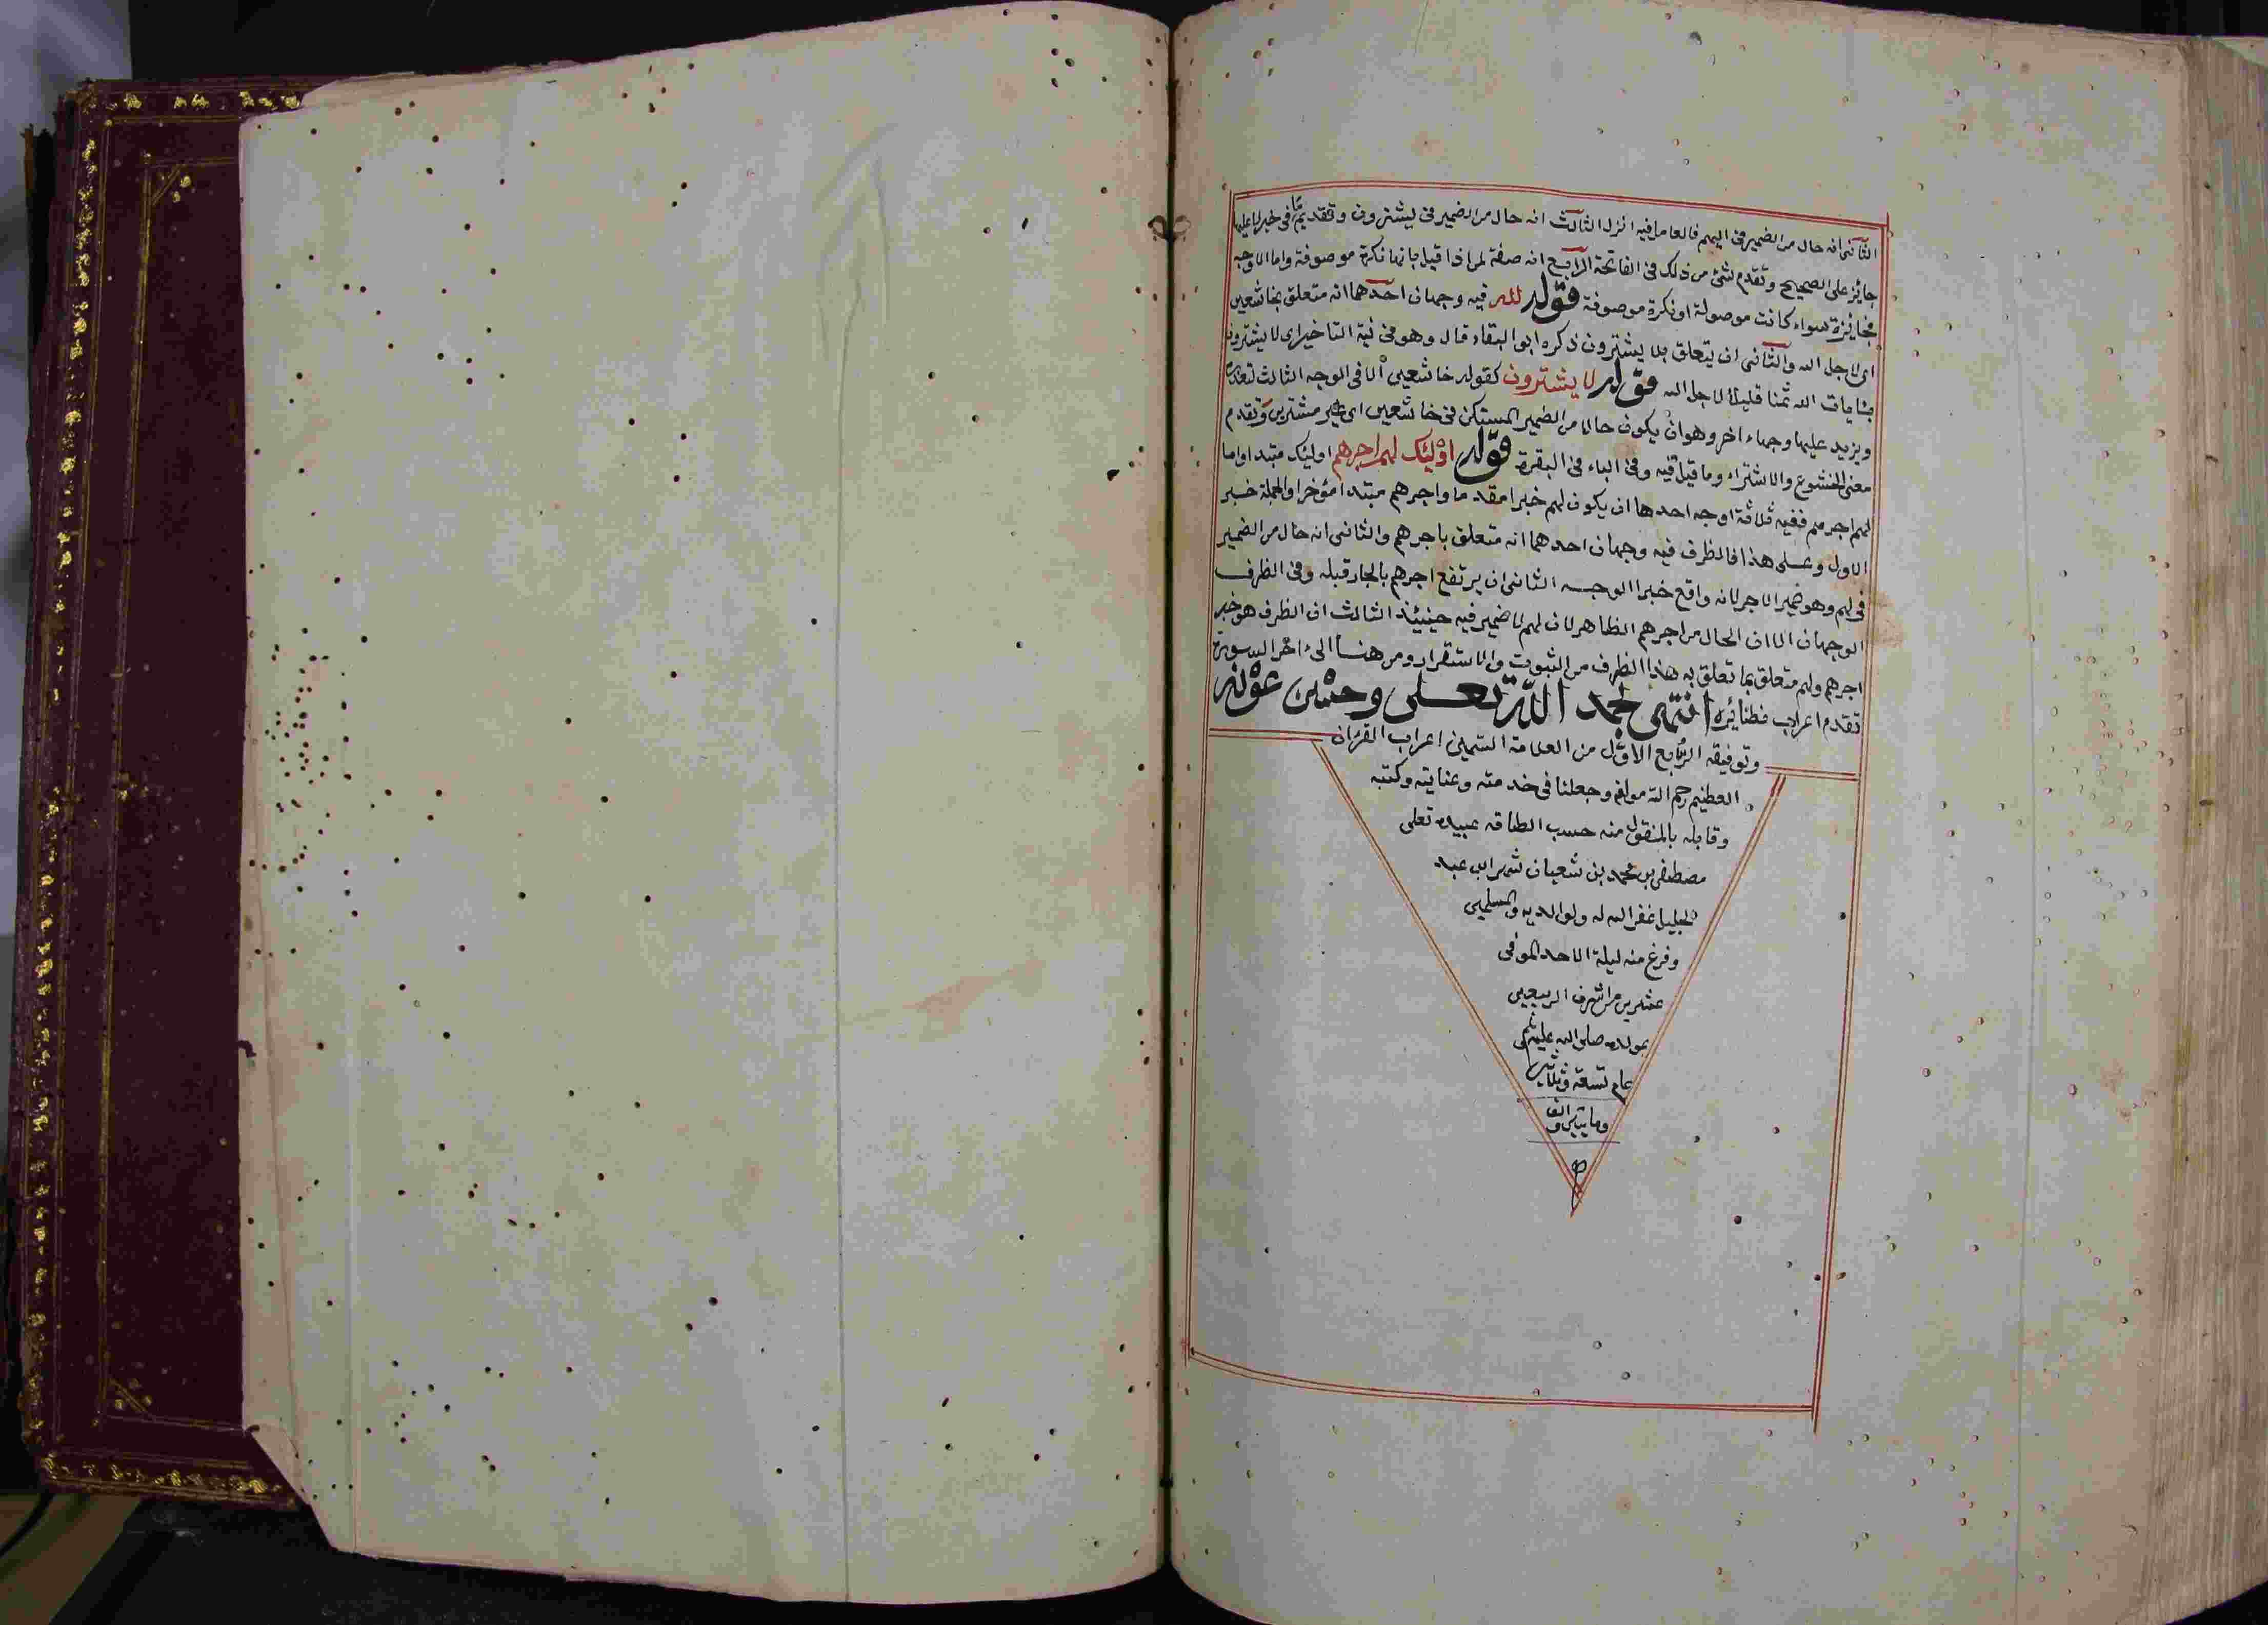 الثانى انه حال من الضمير فى اليهم فالعامل فيه انزل الثالث انه حال من الضمير فى يشترون وتقديم ما فى خبر لا عليها
جايز على الصحيح وتقدم شئ من ذلك فى الفاتحة الرابع انه صفة لمن اذا قيل بانها نكرة موصوفة واما الاوجه
فجايزة سواء كانت موصولة او نكرة موصوفة قوله لله فيه وجهان احدهما انه متعلق بخاشعين
اى لاجل الله والثانى ان يتعلق بلا يشترون ذكره ابو البقاء قال وهو فى نية التاخير اى لا يشترون
بئايات الله ثمنا قليلا لاجل الله قوله لا يشترون كقوله خاشعين الا فى الوجه الثالث لتعذره
ويزيد عليها وجهاء اخر وهو ان يكون حالا من الضمير المستكن فى خاشعين اى غير مشترين وتقدم
معنى الخشوع والاشتراء وما قيل فيه وفى الباء فى البقرة قوله اوليك لهم اجرهم اوليك مبتدا واما
لهم اجرهم ففيه ثلاثة اوجه احدها ان يكون لهم خبرا مقدما واجرهم مبتدا مؤخرا والجملة خبر
الاول وعلى هذا فالظرف فيه وجهان احدهما انه متعلق باجرهم والثانى انه حال من الضمير
فى لهم وهو ضمير الاجر لانه واقع خبرا الوجه الثانى ان يرتفع اجرهم بالجار قبله وفى الظرف
الوجهان الا ان الحال من اجرهم الظاهر لان لهم لا ضمير فيه حينيئذ الثالث ان الظرف هو خبر
اجرهم ولهم متعلق بما تعلق به هذا الظرف من الثبوت والاستقرار ومن هنا الى ءاخر السورة
تقدم اعراب نظائره انتهى بحمد الله تعلى وحسن عونه
وتوفيقه الربع الاول من العلامة السمين اعراب القرءان
العظيم رحم الله مولفه وجعلنا فى خدمته وعنايته وكتبه
وقابله بالمنقول منه حسب الطاقه عبيده تعلى
مصطفى بن محمد بن شعبان شهر ابن عبد
الجليل غفر الله له ولوالديه والمسلمين
وفرغ منه ليلة الاحد الموفى
عشرين من اشرف الربيعين
بمولده صلى الله عليه وسلم
عام تسعة وثلاثين
ومايتين والف